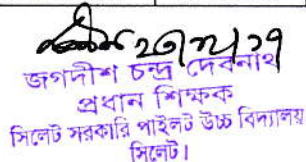 জগদীশ চন্দ্র দেবনাথ
প্রধান শিক্ষক
সিলেট সরকারি পাইলট উচ্চ বিদ্যালয়
সিলেট।